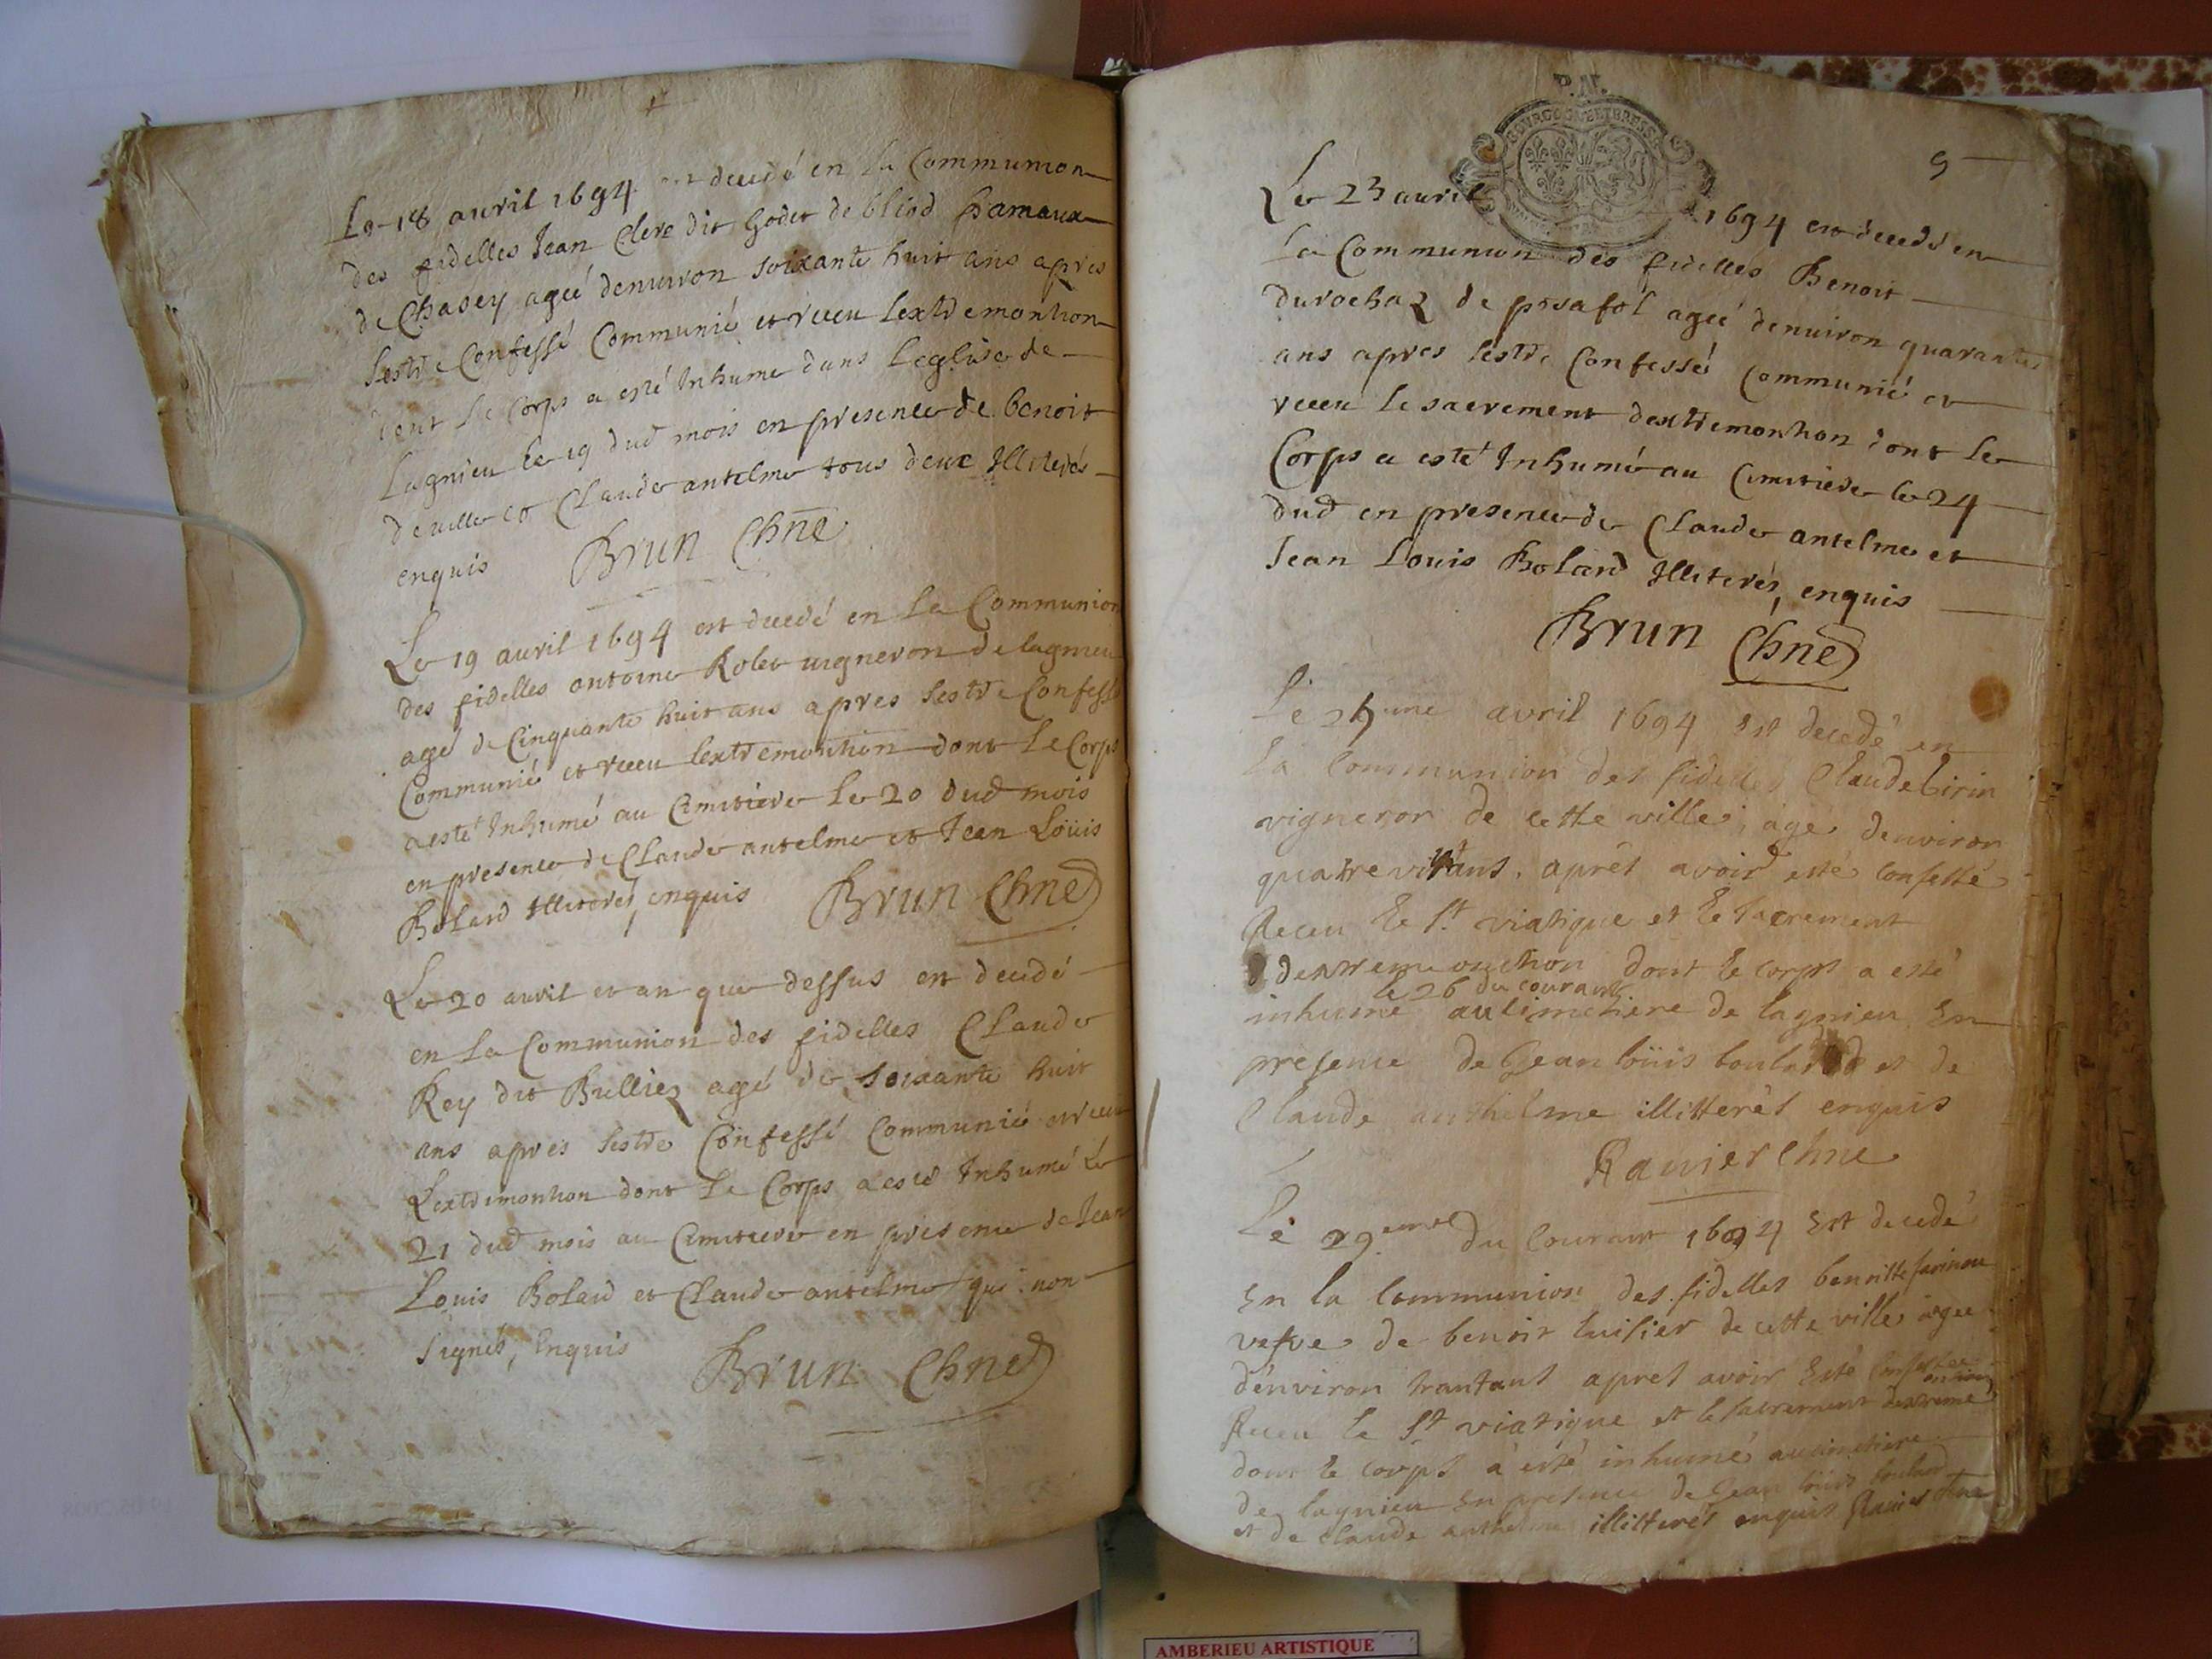 Le 18 avril 1694 est decedé en la Communion
des fidelles Jean Clerc dit godet de bliod hameau
de Chasey ageé denuiron soixante huit ans apres
sestre Confessé Communié et receu lextremontion
dont le Corps a esté Inhumé dans Leglise de
Lagnieu le 19 dud mois en presence de benoit
deville et Claude antelme tous deux Illiterés
enquis Brun Chne
Le 19 auril 1694 est decedé en la Communion
des fidelles antoine Rolet uigneron de lagnieu
agé de Cinquante huit ans apres sestre Confessé
Communié et receu lextremontion dont le Corps
a esté Inhumé au Cimitiere le 20 dud mois
en presence de Claude antelme et Jean Loüis
Bolard Illiterés, enquis Brun Chne
Le 20 auril et an que dessus est decedé
en la Communion des fidelles Claude
Rey dit Bulliez agé de soixante huit
ans apres sestre Confessé Communié et receu
Lextrémontion dont le Corps a esté Inhumé le
21 dud mois au Cimitiere en presence de Jean
Louis Bolard et Claude antelme qui non
signés, Enquis Brun Chne
P.N.
BOURGOGNE ET BRESSE
9
Le 23 auril 1694 est decedé en
la Communion des fidelles Benoit
durochaz de posafol ageé denuiron quarante
ans apres sestre Confessé Communié et
receu le sacrement dextremontion dont le
Corps a esté Inhumé au Cimitiere le 24
dud en presence de Claude antelme et
Jean Louis Bolard Illiterés, enquis
Brun Chne
Le 25eme avril 1694 est decedé en
la Communion des fidelles Claude Girin
vigneron de cette ville, agé denviron
quatre vingt ans, aprés avoir esté Confessé
Receu le St viatique et le sacrement
dextreme onction dont le corps a esté
le 26 du courant
inhumé au Cimetiere de lagnieu En
presence de Jean loüis boulard et de
Claude anthelme illitterés enquis
Ravier Chne
Le 29eme du Courant 1694 Est decedé
En la Communion des fidelles benoitte
vefve de benoit luisier de cette ville agee
d'environ trantans apres avoir Esté Confessee
Receu le St viatique et le sacrement dextreme onction
dont le corps a esté inhumé au cimetiere
de lagnieu En presence de Jean loüis boulard
et de Claude anthelme illitterés enquis Ravier Chne
AMBERIEU ARTISTIQUE